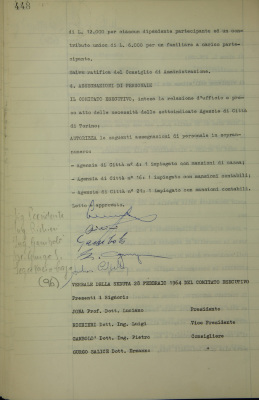 448
di L. 12.000 per ciascun dipendente partecipante ed un con-
tributo unico di L. 6.000 per un familiare a carico parte-
cipante.
Salvo ratifica del Consiglio di Amministrazione.
4. ASSEGNAZIONI DI PERSONALE
IL COMITATO ESECUTIVO, intesa la relazione d'ufficio e pre-
so atto delle necessità delle sottoindicate Agenzie di Città
di Torino;
AUTORIZZA le seguenti assegnazioni di personale in sopran-
numero:
- Agenzia di Città n. 4: 1 impiegato con mansioni di cassa;
- Agenzia di Città n. 16: 1 impiegato con mansioni contabili;
- Agenzia di Città n. 21: 1 impiegato con mansioni contabili.
Letto e approvato.
(96)
VERBALE DELLA SEDUTA 26 FEBBRAIO 1964 DEL COMITATO ESECUTIVO
Presenti i Signori:
JONA Prof. Dott. Luciano Presidente
RICHIERI Dott. Ing. Luigi Vice Presidente
GAMBOLO' Dott. Ing. Pietro Consigliere
GORGO SALICE Dott. Ermanno "